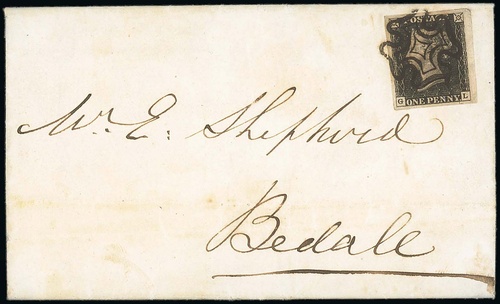 POSTAGE
G ONE PENNY L
Mr. E. Shepherd
Bedale